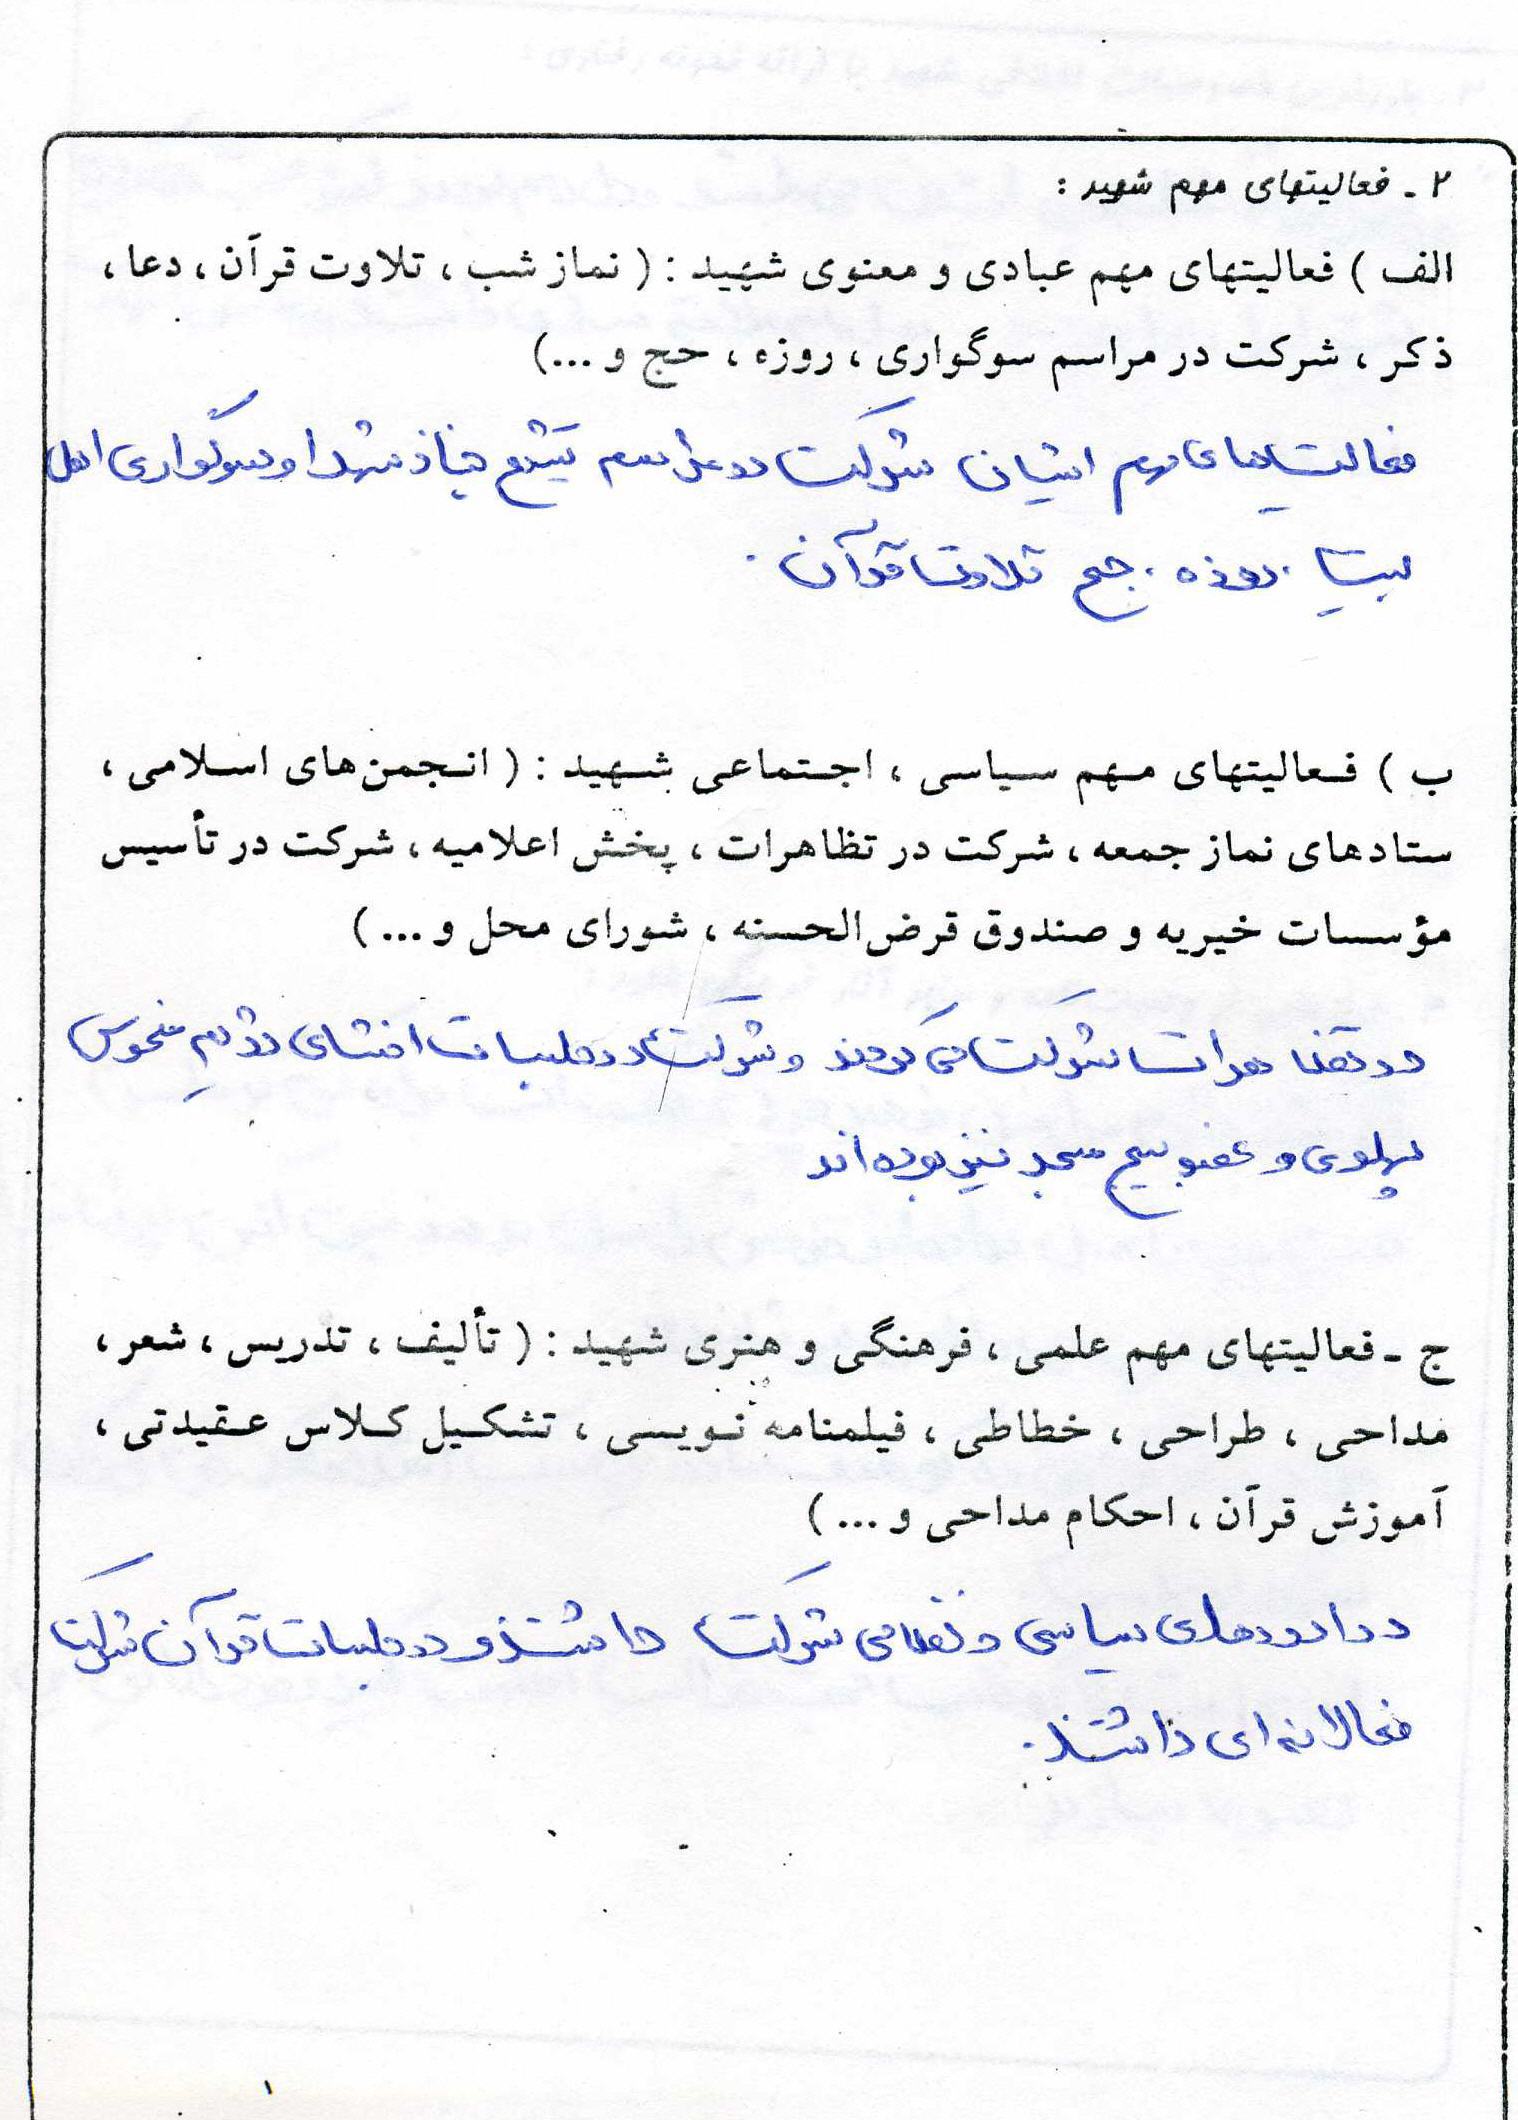 ۲ - فعالیتهای مهم شهید :
الف ) فعالیتهای مهم عبادی و معنوی شهید : ( نماز شب ، تلاوت قرآن ، دعا ،
ذکر ، شرکت در مراسم سوگواری ، روزه ، حج و ...)
فعالیت های مهم ایشان شرکت در مراسم تشیع جناز شهدا و سوگواری اهل
بیت . روزه . حج تلاوت قرآن .
ب ) فعالیتهای مهم سیاسی ، اجتماعی شهید : ( انجمن‌های اسلامی ،
ستادهای نماز جمعه ، شرکت در تظاهرات ، پخش اعلامیه ، شرکت در تأسیس
مؤسسات خیریه و صندوق قرض‌الحسنه ، شورای محل و ... )
در تظاهرات شرکت می کردند و شرکت در جلسات افشای رژیم منحوس
پهلوی و عضو بسیج مسجد نیز بوده اند
ج - فعالیتهای مهم علمی ، فرهنگی و هنری شهید : ( تألیف ، تدریس ، شعر ،
مداحی ، طراحی ، خطاطی ، فیلمنامه نویسی ، تشکیل کلاس عقیدتی ،
آموزش قرآن ، احکام مداحی و ... )
در اردوهای سیاسی و نظامی شرکت داشتند و در جلسات قرآن شرکت
فعالانه ای داشتند .
۱